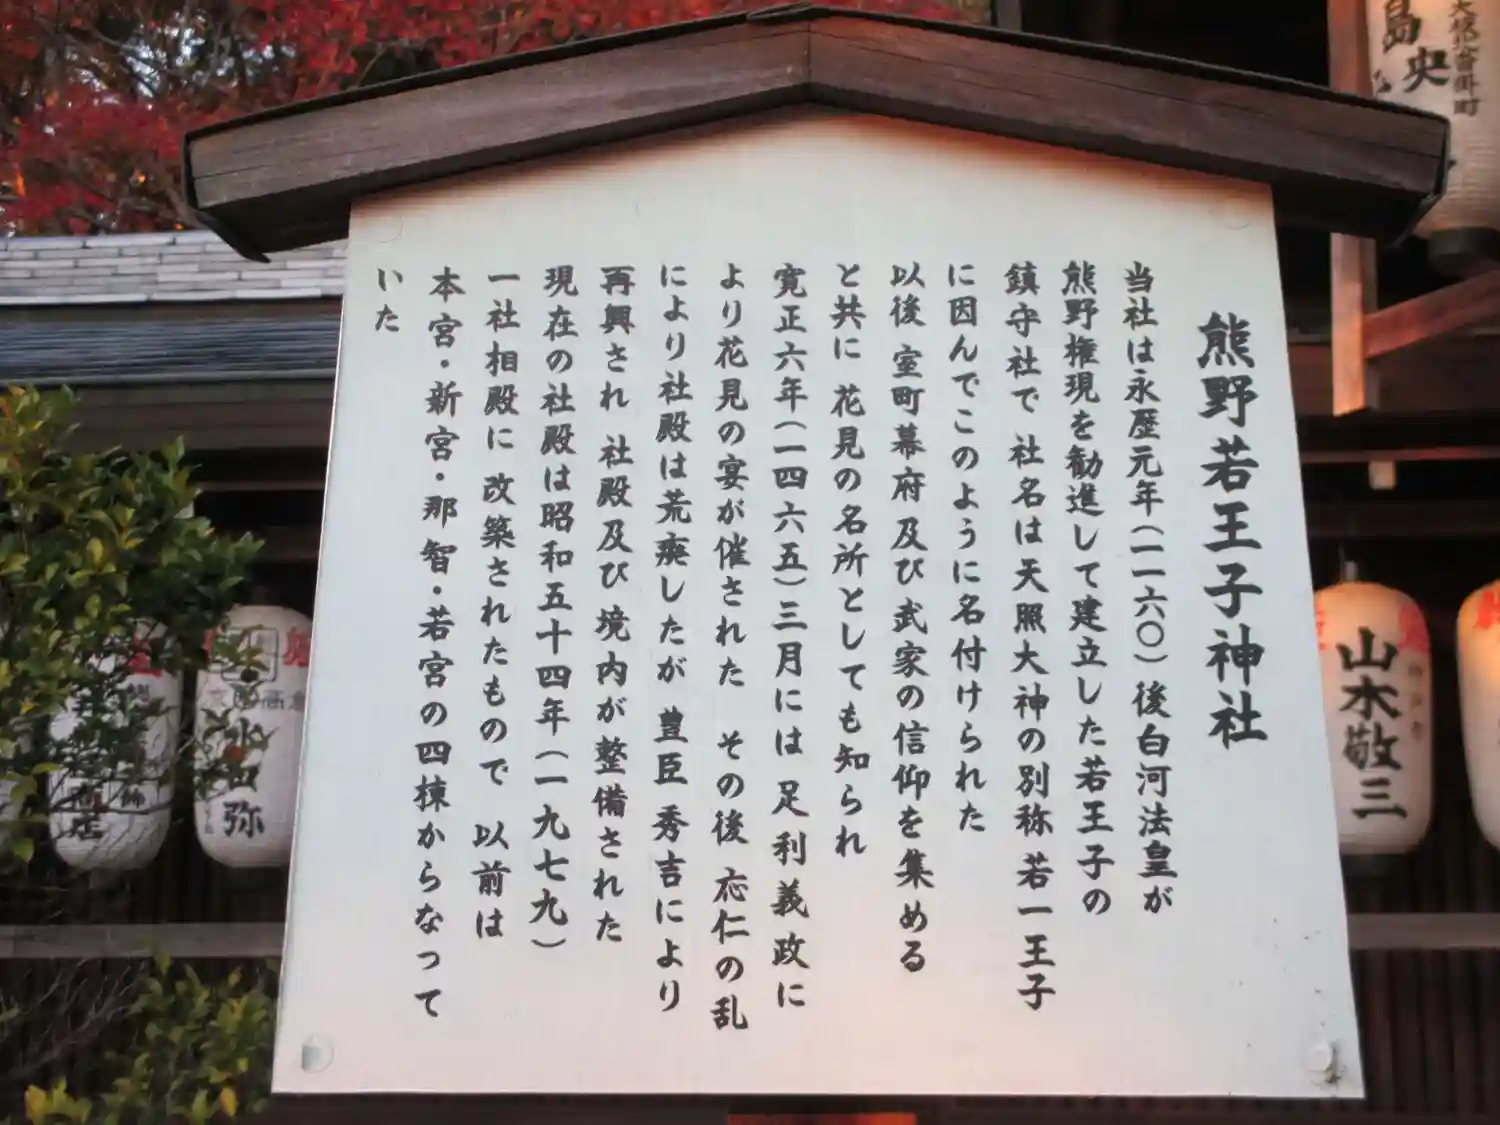 熊野若王子神社
当社は永歴元年（一一六〇）後白河法皇が
熊野権現を勧進して建立した若王子の
鎮守社で 社名は天照大神の別称 若一王子
に因んでこのように名付けられた
以後 室町幕府 及び 武家の信仰を集める
と共に 花見の名所としても知られ
寛正六年（一四六五）三月には 足利義政に
より花見の宴が催された その後 応仁の乱
により社殿は荒廃したが 豊臣 秀吉により
再興され 社殿及び 境内が整備された
現在の社殿は昭和五十四年（一九七九）
一社相殿に 改築されたもので 以前は
本宮・新宮・那智・若宮の四棟からなって
いた
山本敬三
島
央